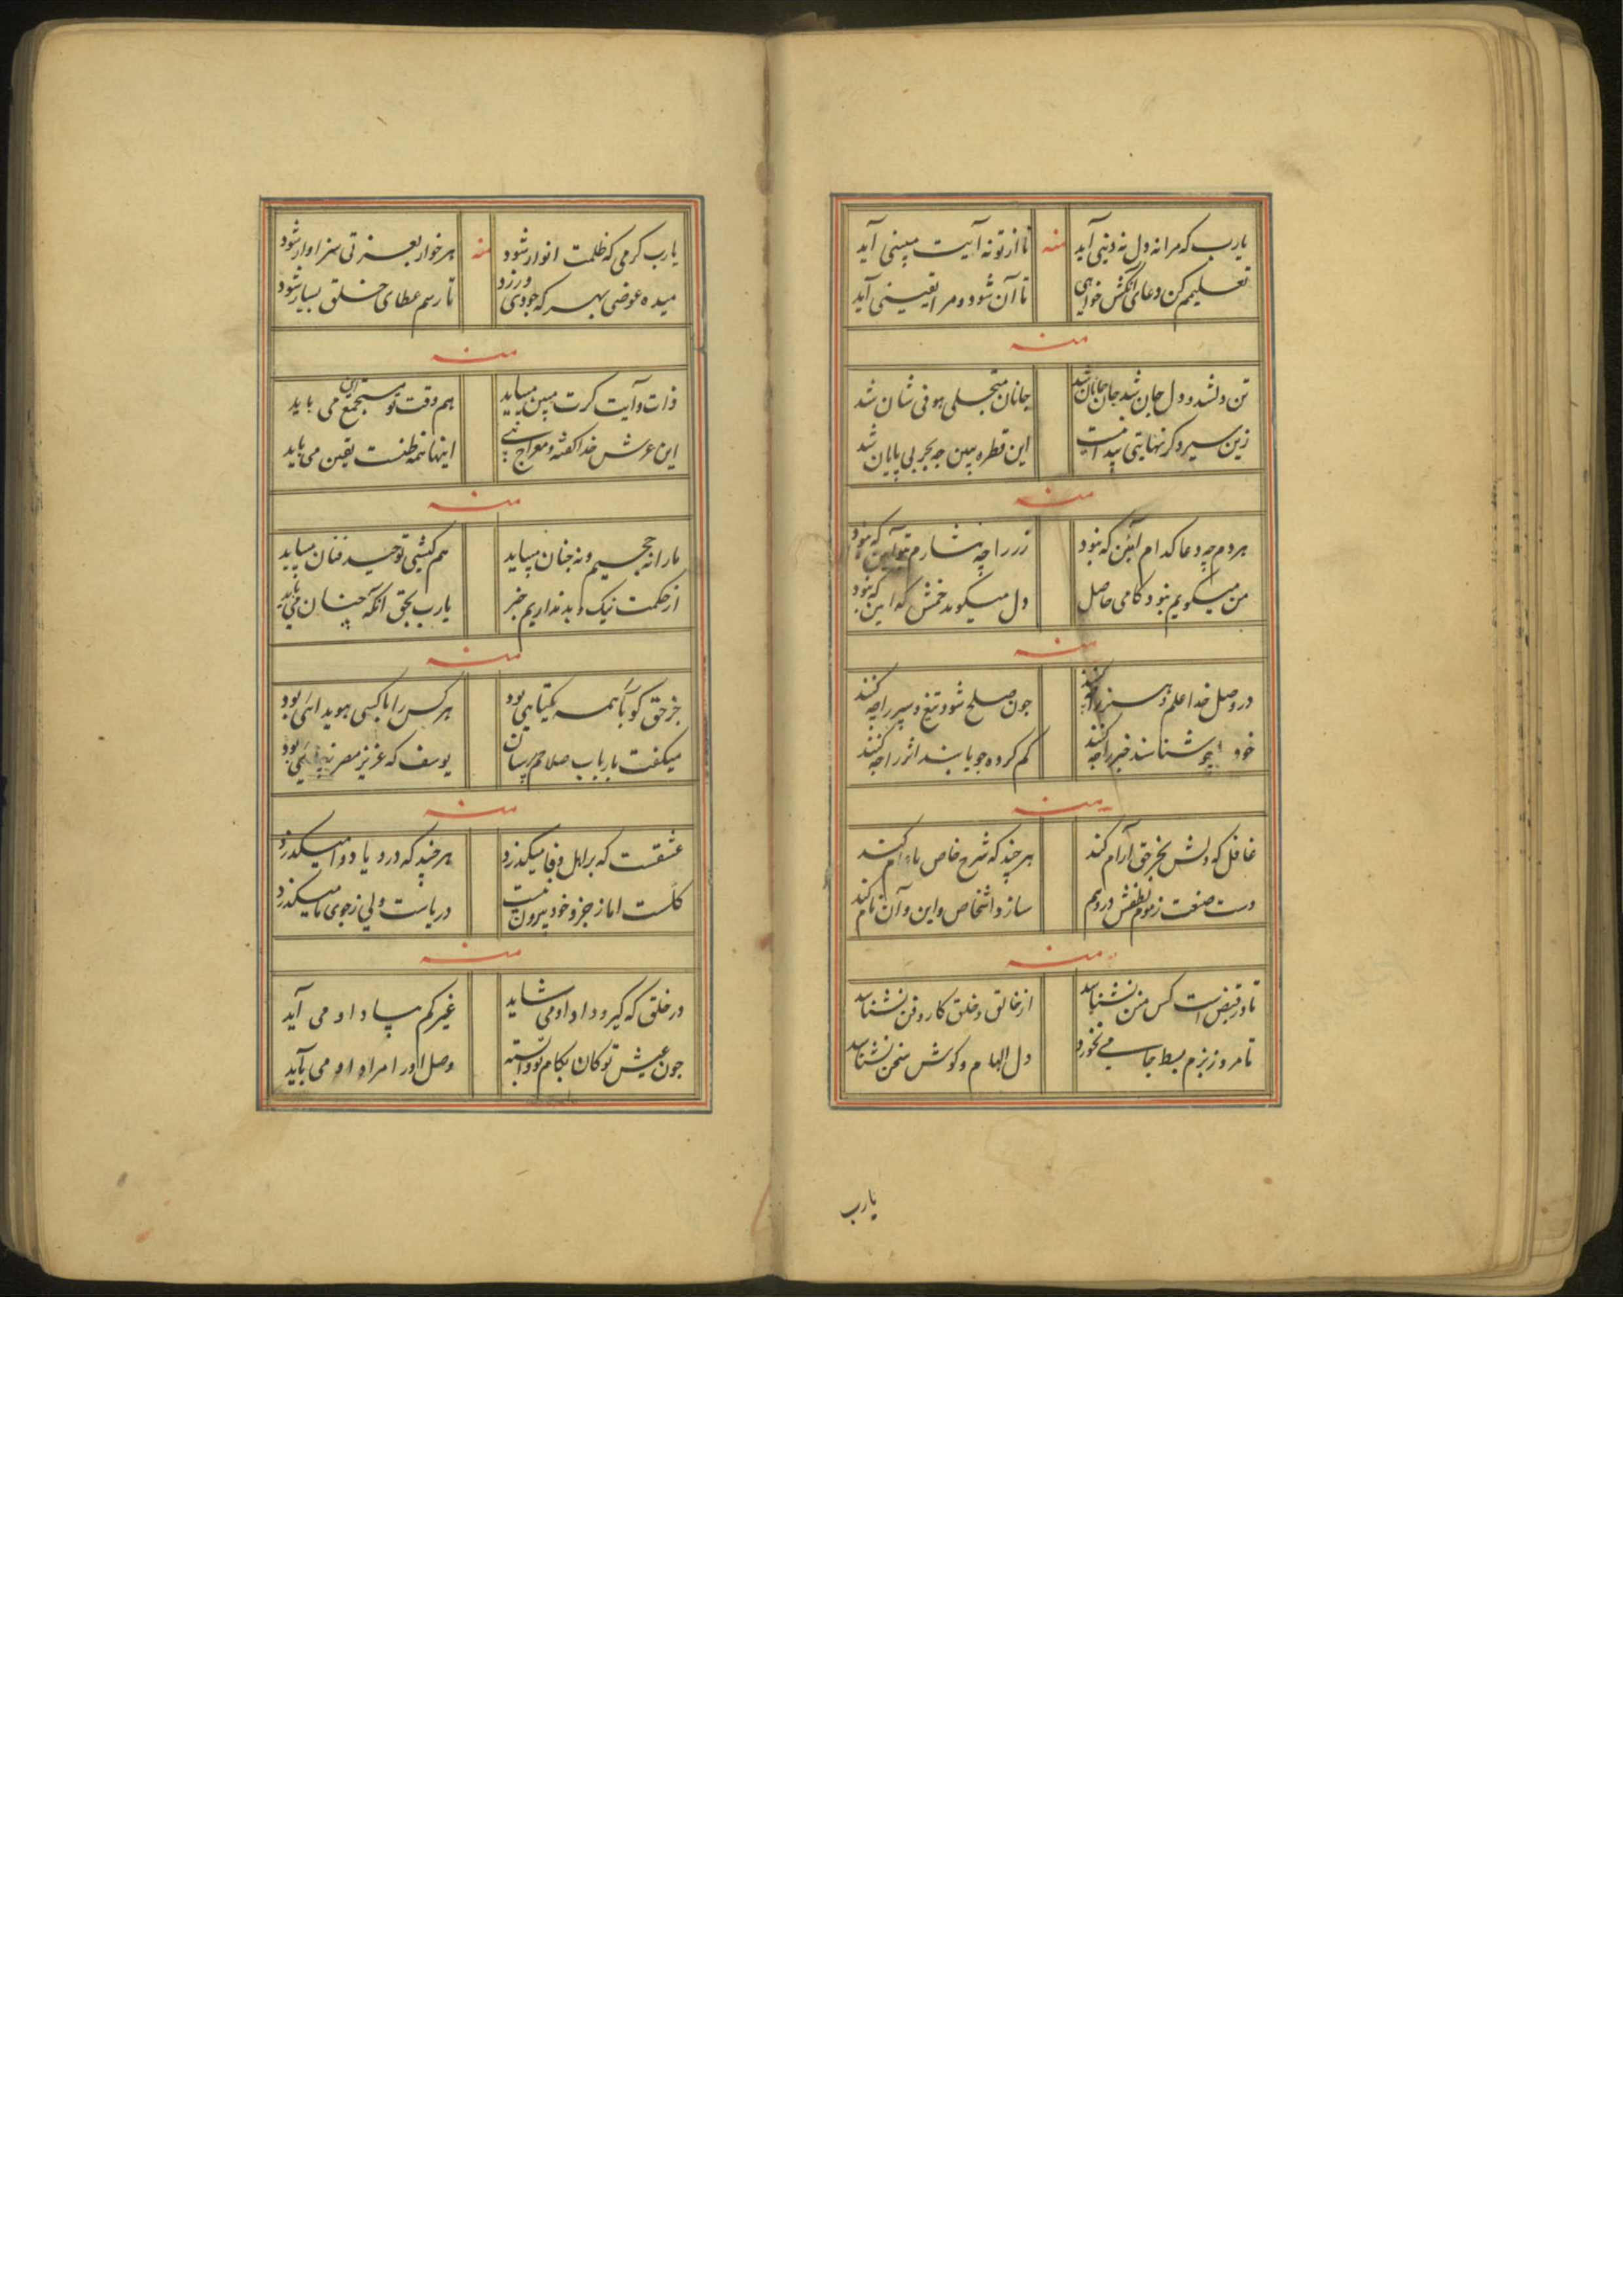 یارب که مرا نه دل نه دینی آید
منه
تا از تو نه آیت مبینی آید
تعلیمم کن دعای آنکش خواهی
تا آن شود و مرا یقینی آید
منه
تن دل شد و دل جان شد جان جانان شد
جانان متجلی هو فی شان شد
زین سیر دکر نهایتی پیدا نیست
این قطره ببین جه بحر بی پایان شد
منه
هر دم چه دعا کدام آیین که نبود
زر را چه نثارم تو آیین که نبود
من میکویم نبود کامی حاصل
دل میکوید خمش که این که نبود
منه
در وصل خدا علم و هنر را چه کنند
جون صلح شود تیغ و سپر را چه کنند
خود را جو شناسند خبر را جه کنند
کم کرده جو یابند اثر را جه کنند
منه
غافل که دلش بجز حق آرام کند
هر چند که شرح خاص یا عام کند
دست صنعت ز موم لطفش در وهم
سازد اشخاص و این و آن نام کند
منه
تا در قبض است کس من نشناسد
از خالق و خلق کار و فن نشناسد
تا مرد ز بزم بسط جامی نخورد
دل الهام و کوش سخن نشناسد
یارب
یارب کرمی که ظلمت انوار شود
منه
هر خوار بعزتی سزاوار شود
میده عوضی بهر که جودی ورزد
تا رسم عطای خلق بسیار شود
منه
ذات و آیت کرت مبین میباید
هم وقت تو مستجمع این می باید
این عرش خدا کفته و معراج نبی
اینها همه ظنست یقین می باید
منه
ما را نه جحیم و نه جنان میباید
هم کیشی توحید فنان میباید
از حکمت نیک و بد نداریم خبر
یارب بحق آنکه آنچنان می باید
منه
جز حق کو با همه یکتایی بود
هر کس را با کسی هویدایی بود
میکفت بارباب صلاحم برسان
یوسف که عزیز مصر
منه
عشقست که بر اهل وفا میکذرد
هر چند که درد یا دوا میکذرد
کلست اما ز جزو خود بیرون نیست
دریاست ولی ز جوی ما میکذرد
منه
در خلق که کیر و داد او می شاید
غیر کم بیاد او می آید
جون عیش تو کان بکام تو وابسته
وصل او را مراد او می باید